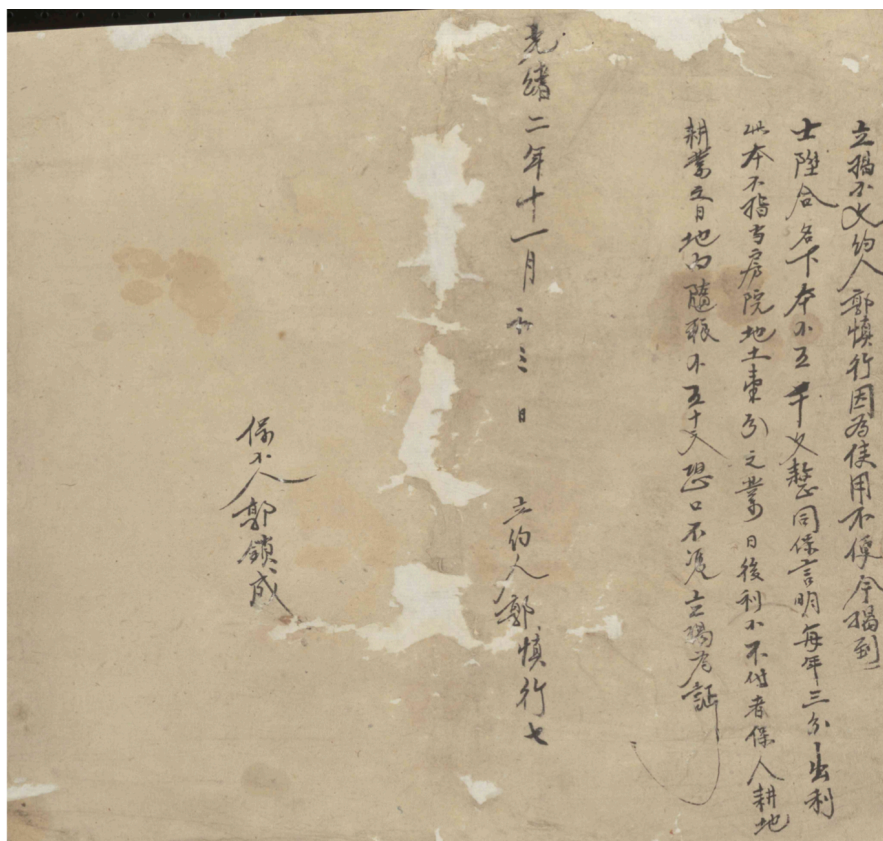 立揭小文約人郭慎行因為使用不便今揭到
士陞合名下本小五千文整同保言明每年三分出利
此本不揭与房院地土棗列之業日後利小不付者保人耕地
耕業五日地內隨粮小五十文恐口不凴立揭為証
光緒二年十一月初三日 立約人郭慎行七
保小人郭鎖成